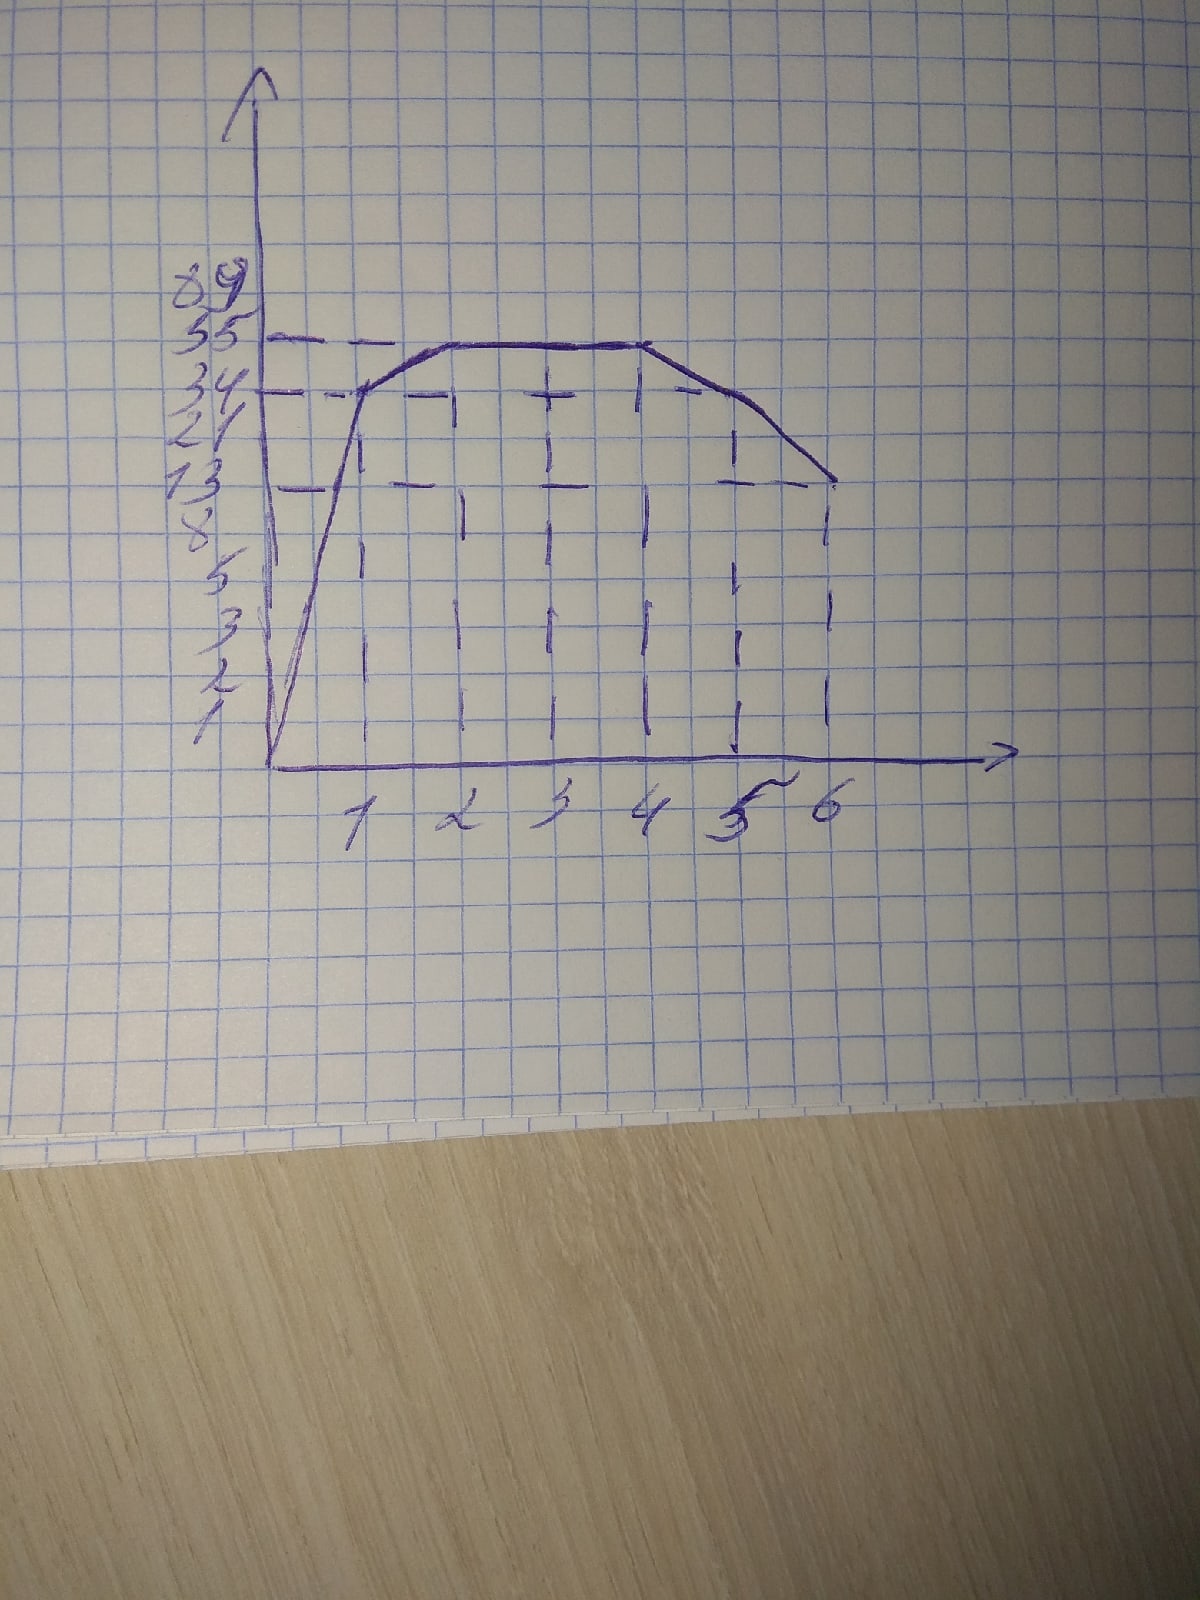 89
55
34
21
13
8
5
3
2
1
1 2 3 4 5 6